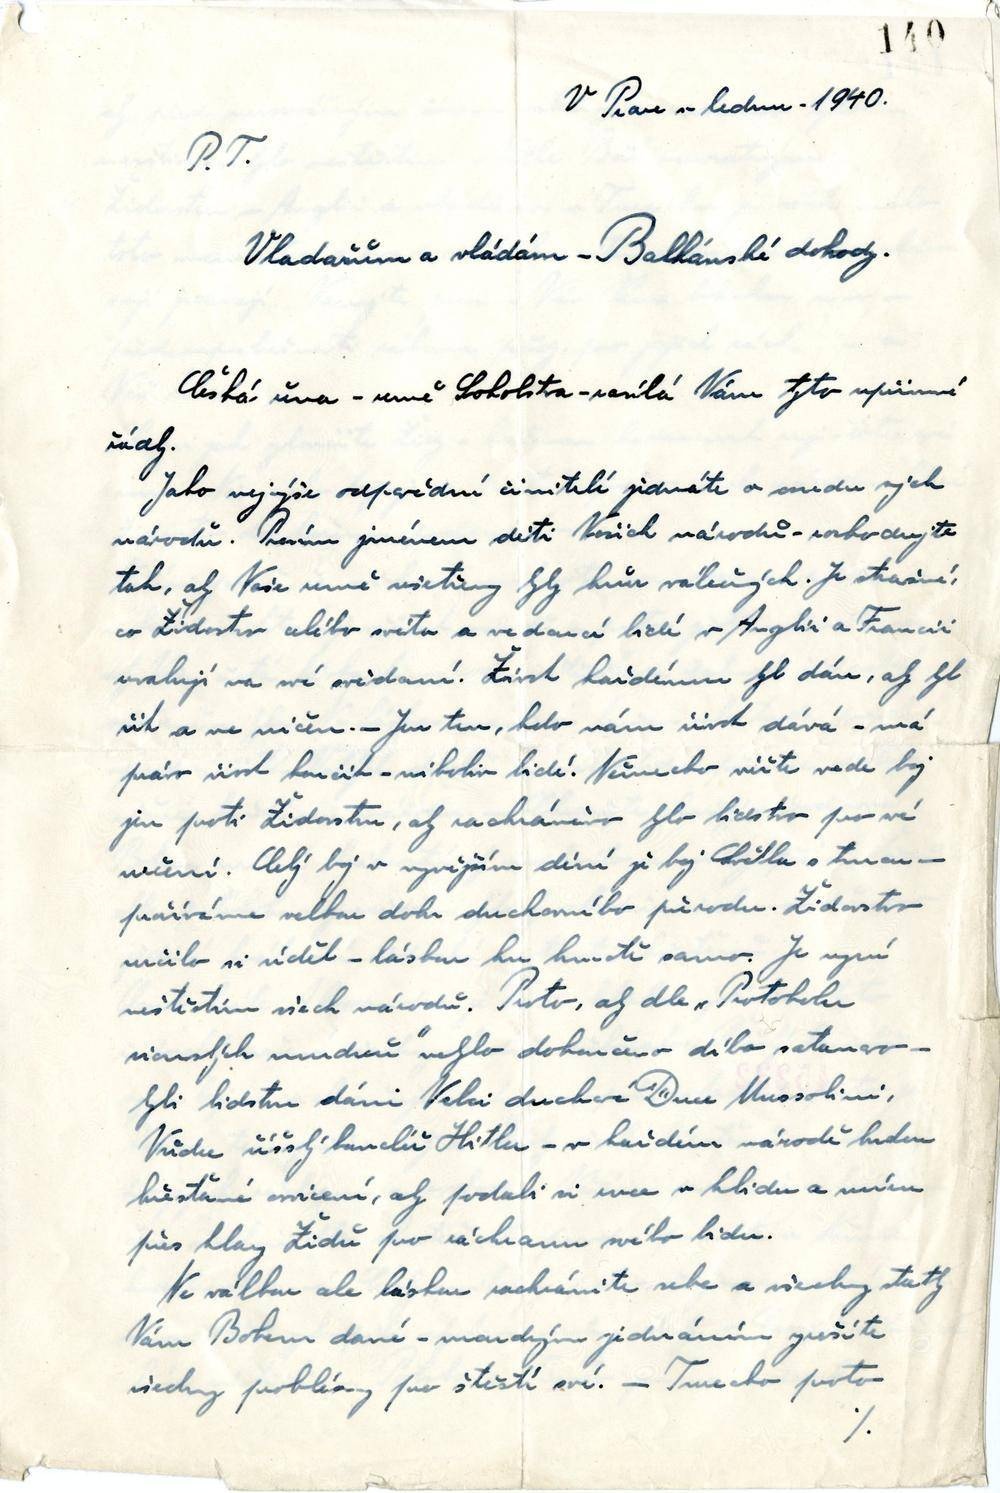 140
V Praze v lednu - 1940.
P. T.
Vladařům a vládám - Balkánské dohody.
Česká žena - země Sokolstva - zasílá Vám tyto upřímné
řádky.
Jako nejvýše odpovědní činitelé jednáte o osudu svých
národů. Prosím jménem dětí Vašich národů - rozhodujte
tak, aby Vaše země ušetřeny byly hrůz válečných. Je strašné,
co Židovstvo celého světa a vedoucí lidé v Anglii a Francii
uvalují na své svědomí. Život každému byl dán, aby byl
žit a ne ničen. - Jen ten, kdo nám život dává - má
právo život končit - nikoliv lidé. Německo věřte vede boj
jen proti Židovstvu, aby zachráněno bylo lidstvo pro své
určení. Celý boj v nynějším dění je boj Světla s tmou -
prožíváme velkou dobu duchovního přerodu. Židovstvo
určilo si úděl - láskou ku hmotě samo. Je nyní
neštěstím všech národů. Proto, aby dle „Protokolu
sionských mudrců" nebylo dokončeno dílo satanovo -
byli lidstvu dáni Velcí duchové Duce Mussolini,
Vůdce říšský kancléř Hitler - v každém národě budou
křesťané osvícení, aby podali si ruce v klidu a míru
přes hlavy Židů pro záchranu svého lidu.
Ne válkou ale láskou zachráníte sebe a všechny statky
Vám Bohem dané - moudrým jednáním vyřešíte
všechny problémy pro štěstí své. - Turecko proto
./.